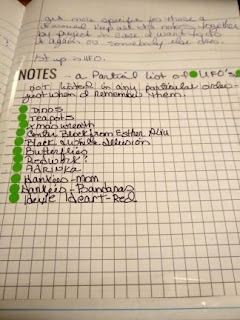 get more specific for those I
keep all the notes together
by project in case I want to do
it again or somebody else does.
Set up a UFO.
NOTES - a Partial list of UFO's
not listed in any particular order -
just when I remember them.
Dinos
Teapots
Xmas wreath
Center Block from Esther Aliu
Black & White dillusion
Butterflies
Redwork?
Adrinka
Hankies - Mom
Hankies - Bandanas
Idcart - Red